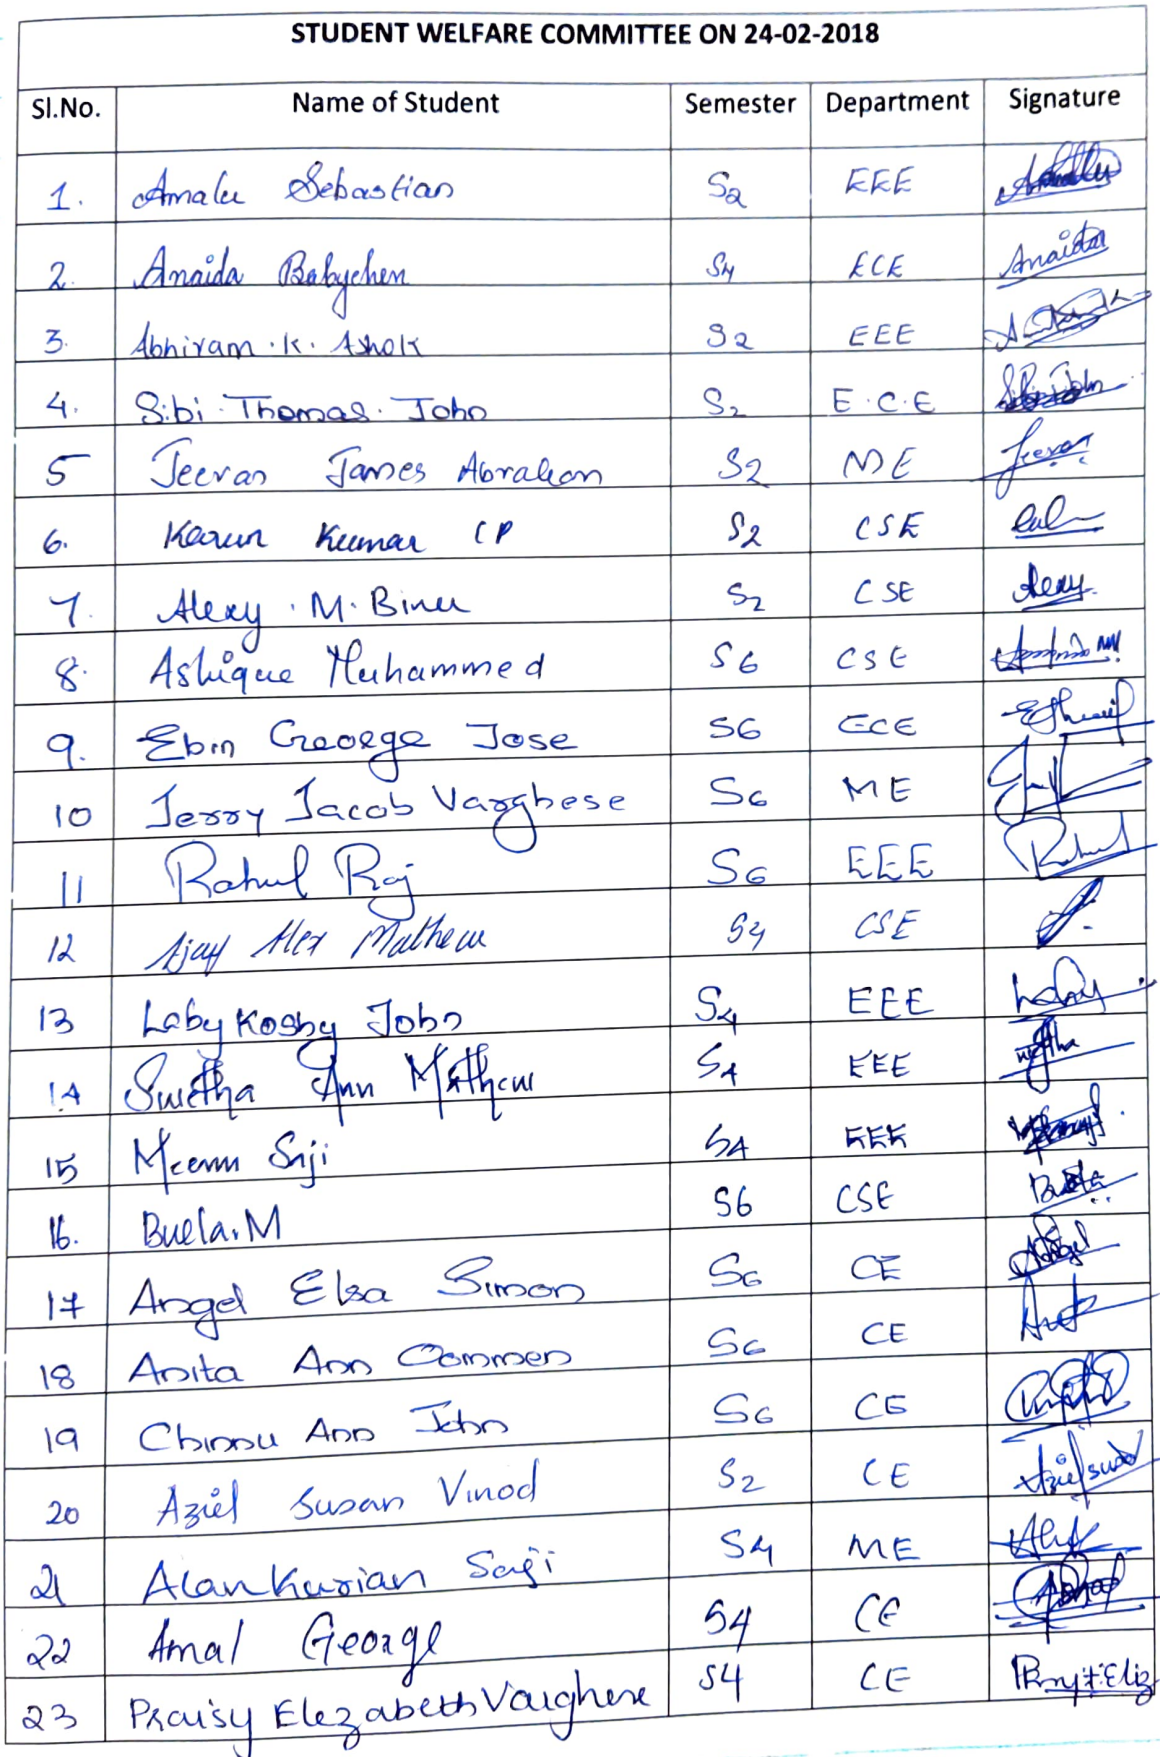 STUDENT WELFARE COMMITTEE ON 24-02-2018
Sl.No. Name of Student Semester Department Signature
1. Amalu Sebastian S2 EEE
2. Anaida Babychen S4 ECE Anaida
3. Abhiram.K. Ashok S2 EEE
4. Sibi Thomas. John S2 E.C.E
5 Jeevan James Abraham S2 ME Jeevan
6. Karun Kumar CP S2 CSE
7. Alexy .M. Binu S2 CSE Alexy.
8. Ashique Muhammed S6 CSE
9. Ebin George Jose S6 ECE
10 Jerry Jacob Varghese S6 ME
11 Rahul Raj S6 EEE Rahul
12 Ajay Alex Mathew S4 CSE
13 Laby Kosby John S4 EEE Laby
14 Swetha Ann Mathew S4 EEE
15 Meenu Saji S4 EEE
16. Buela.M S6 CSE Buela
17 Angel Elsa Simon S6 CE Angel
18 Anita Ann Oommen S6 CE
19 Chinnu Ann John S6 CE
20 Aziel Susan Vinod S2 CE Azielsusan
21 Alan Kurian Saji S4 ME
22 Amal George S4 CE
23 Praisy Elezabeth Vaughese S4 CE